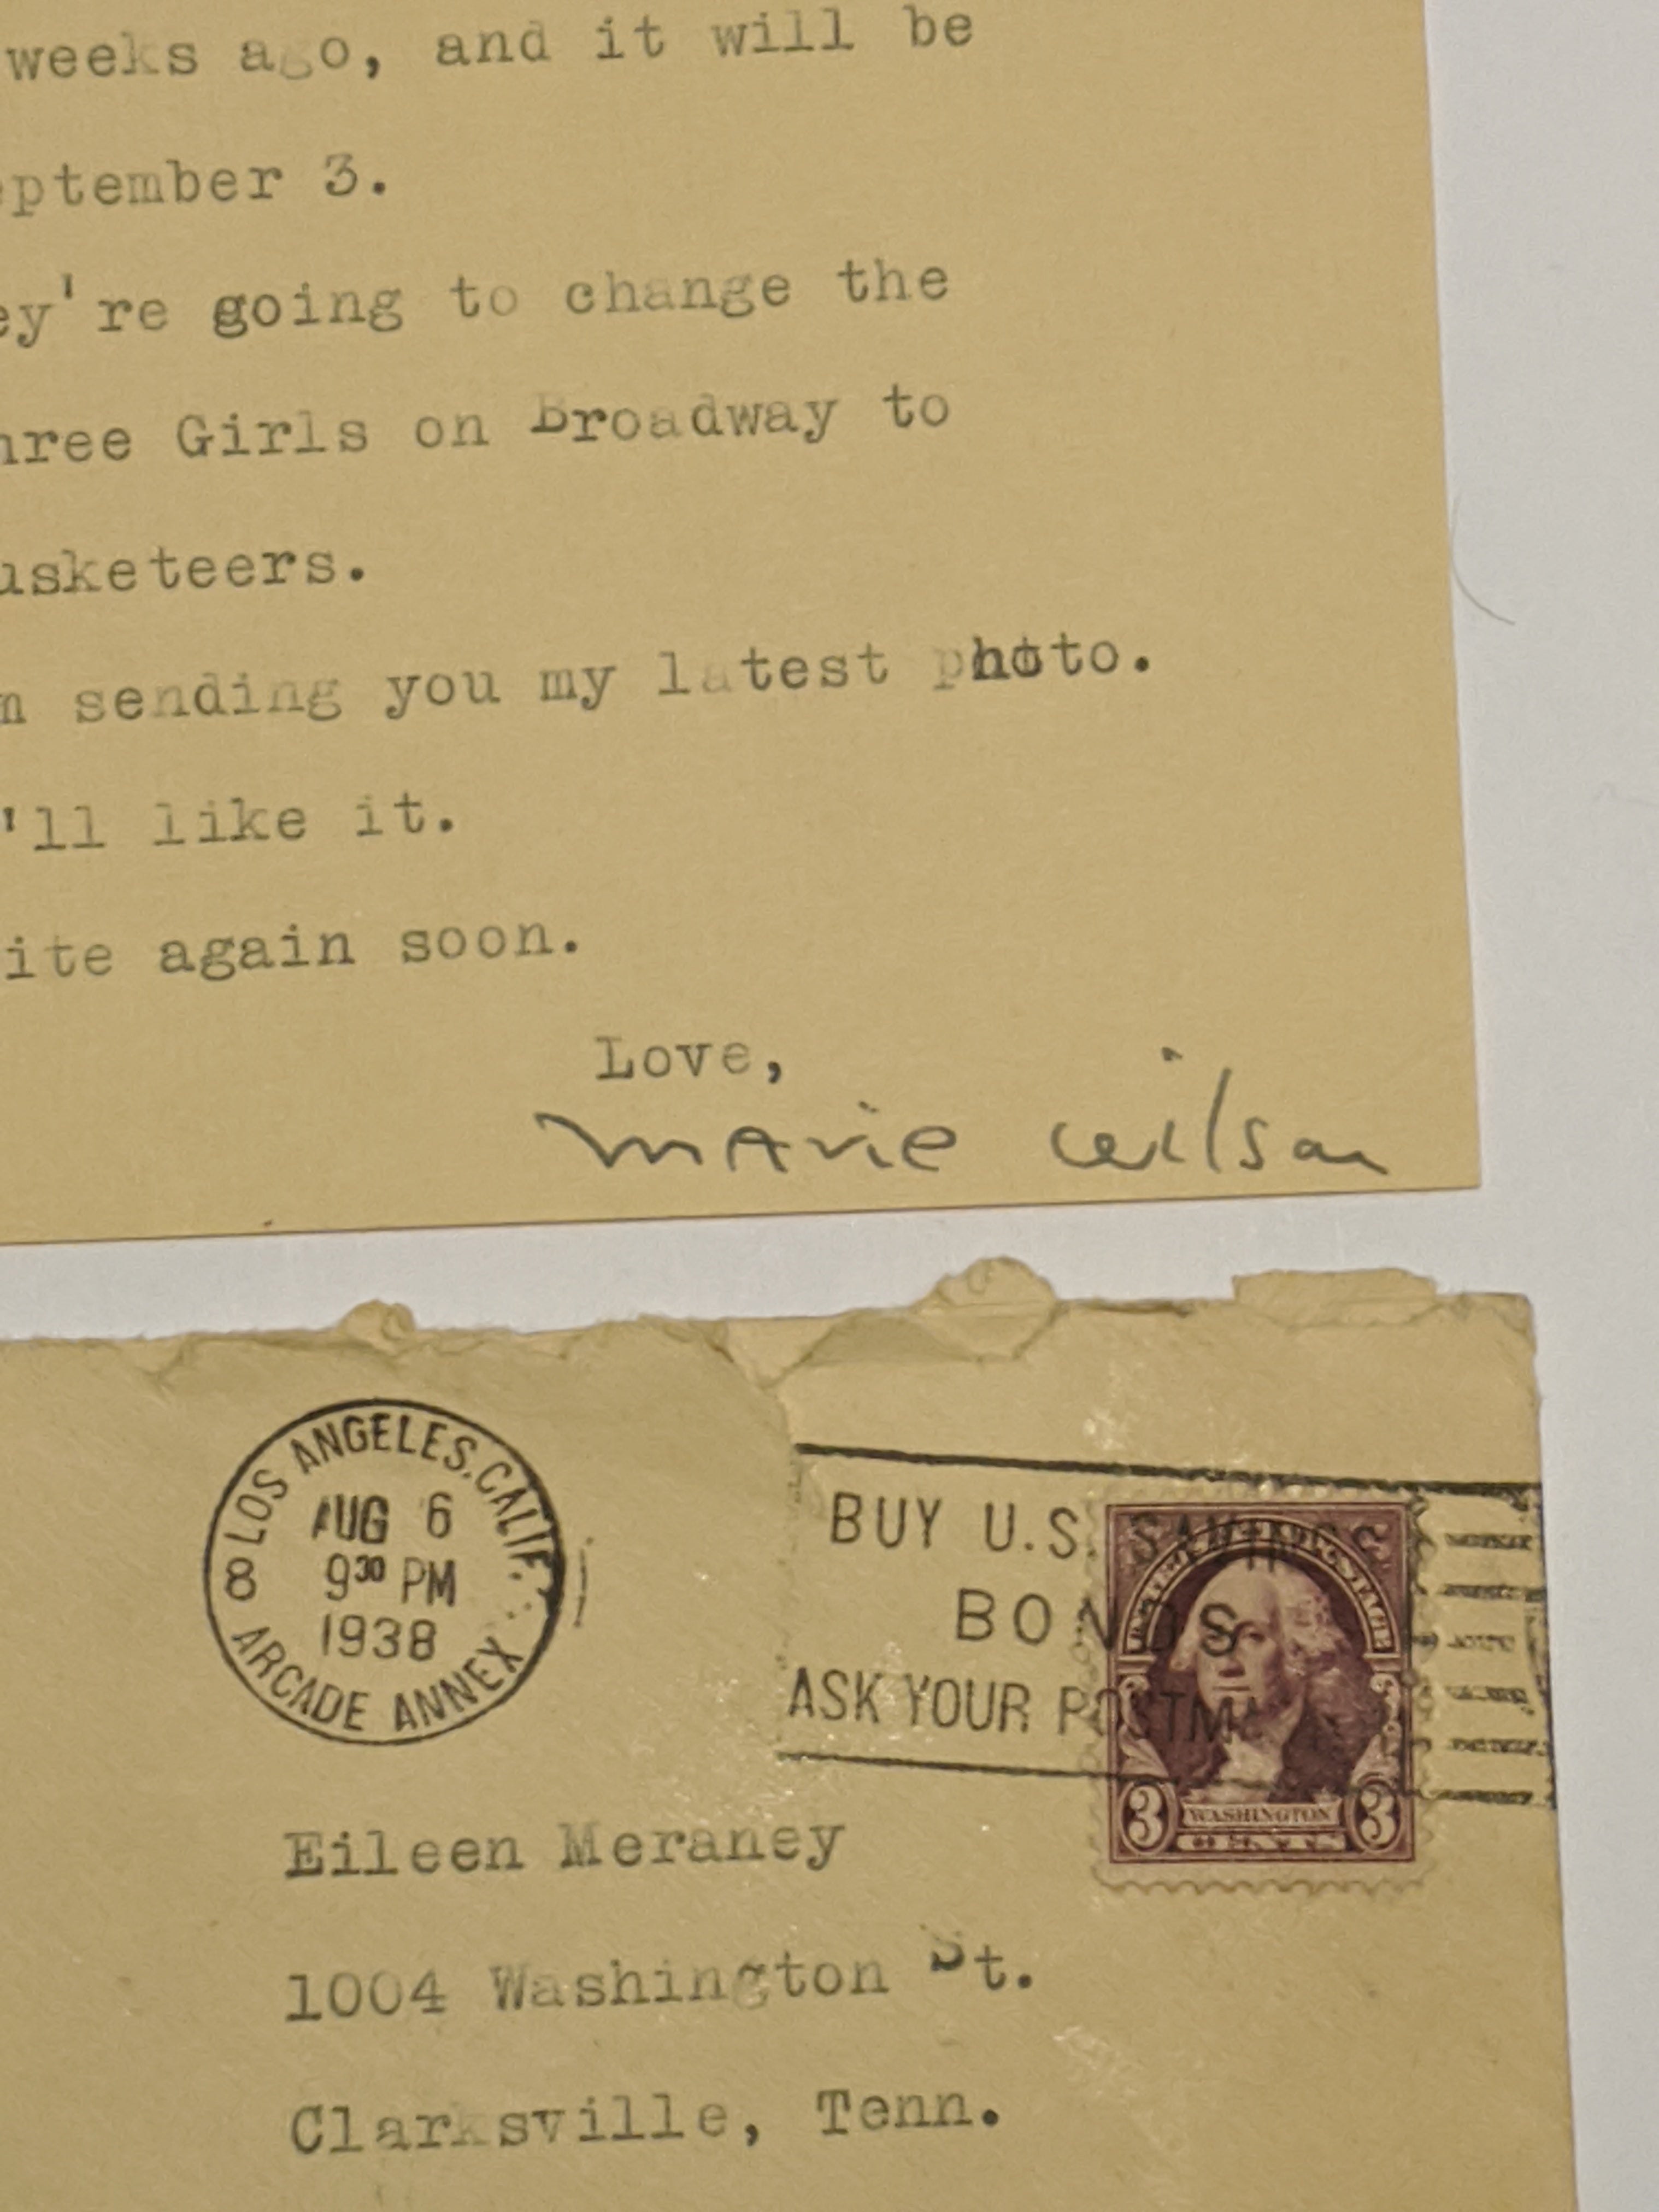 weeks ago, and it will be
eptember 3.
ey're going to change the
hree Girls on Broadway to
usketeers.
m sending you my latest photo.
'll like it.
ite again soon.
Love,
Marie Wilson
LOS ANGELES, CALIF.
AUG 6
9 30 PM
1938
8
ARCADE ANNEX
BUY U.S. SAVINGS
BONDS
ASK YOUR POSTMA
3 WASHINGTON 3
Eileen Meraney
1004 Washington St.
Clarksville, Tenn.